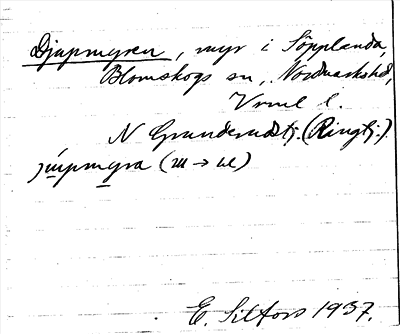 Djupmyren, myr i Söpplanda,
Blomskogs sn, Nordmarks hd,
Vrml l.
N Grunderudstj. (Ringtj.).
júpmyra
E. Silfors 1937.